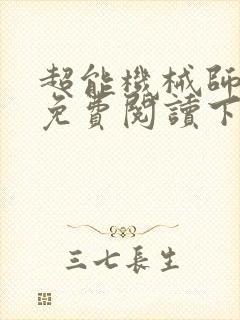 超能機械師
免費閱讀下
三七長生